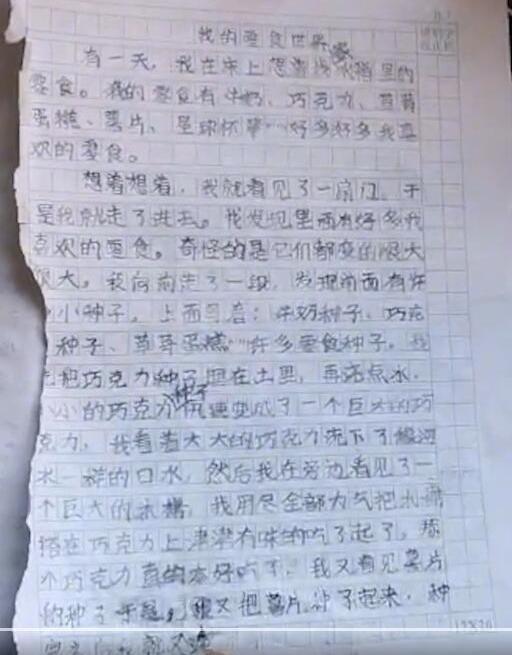 我的零食世界
有一天，我在床上想着找冰箱里的
零食。我的零食有牛奶、巧克力、草莓
蛋糕、薯片、星球杯等……好多好多我喜
欢的零食。
想着想着，我就看见了一扇门，于
是我就走了进去。我发现里面有好多我
喜欢的零食。奇怪的是它们都变的很大
很大。我向前走了一段，发现前面有许
小种子，上面写着：牛奶种子、巧克
种子、草莓蛋糕……许多零食种子。我
把巧克力种子埋在土里，再浇点水，
小的巧克力种子迅速变成了一个巨大的巧
克力，我看着大大的巧克力流下了像河
水一样的口水，然后我在旁边看见了一
个巨大的水槽，我用尽全部力气把水槽
搭在巧克力上津津有味的吃了起了，那
个巧克力真的太好吃了，我又看见薯片
的种子于是，我又把薯片种了起来，种